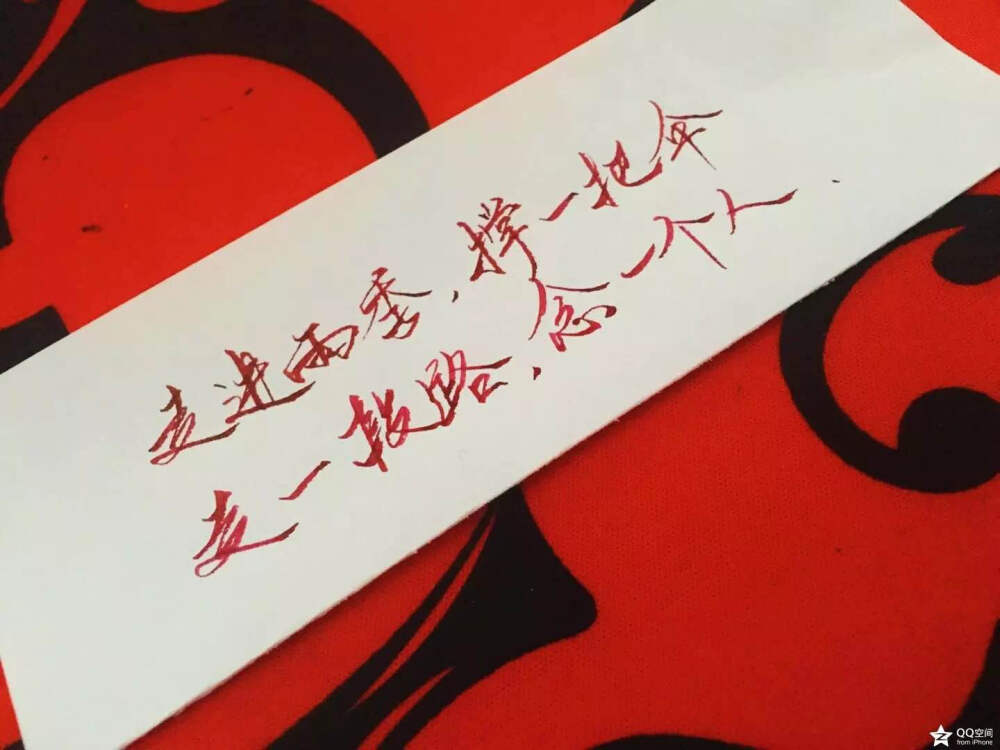 走进雨季，撑一把伞
走一段路，念一个人.
QQ空间
from iPhone